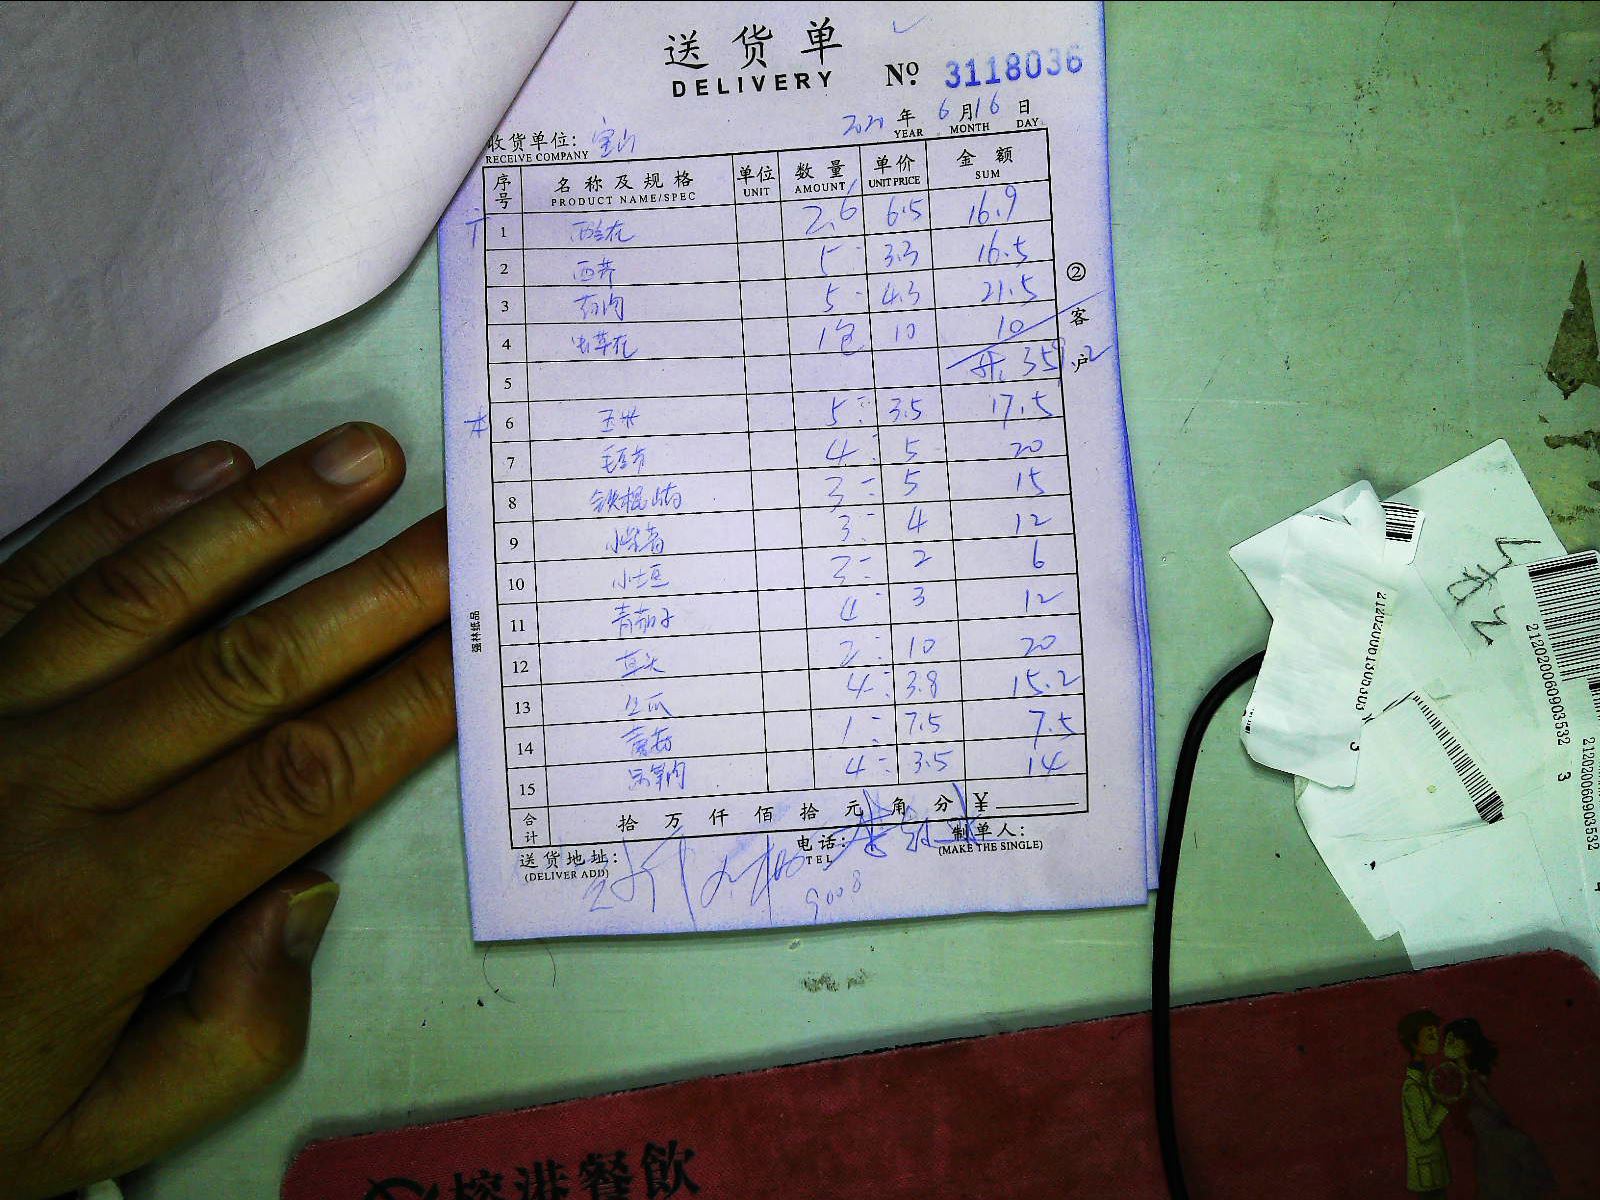 送货单
DELIVERY № 3118036
2021 年 6 月 16 日
YEAR MONTH DAY
收货单位: 宝山
RECEIVE COMPANY
序号 名称及规格 单位 数量 单价 金额
PRODUCT NAME/SPEC UNIT AMOUNT UNIT PRICE SUM
1 西兰花 2.6 6.5 16.9
2 西芹 5 3.3 16.5
3 5 4.3 21.5
4 虫草花 1包 10 10
5 359.2
6 玉米 5 3.5 17.5
7 4 5 20
8 铁棍山药 3 5 15
9 3 4 12
10 小土豆 3 2 6
11 青茄子 4 3 12
12 2 10 20
13 丝瓜 4 3.8 15.2
14 1 7.5 7.5
15 4 3.5 14
合计 拾 万 仟 佰 拾 元 角 分 ¥
送货地址: 电话: 制单人:
(DELIVER ADD) TEL (MAKE THE SINGLE)
9008
② 客户
强林纸品
212020060903532 3
212020060903532
港餐飲